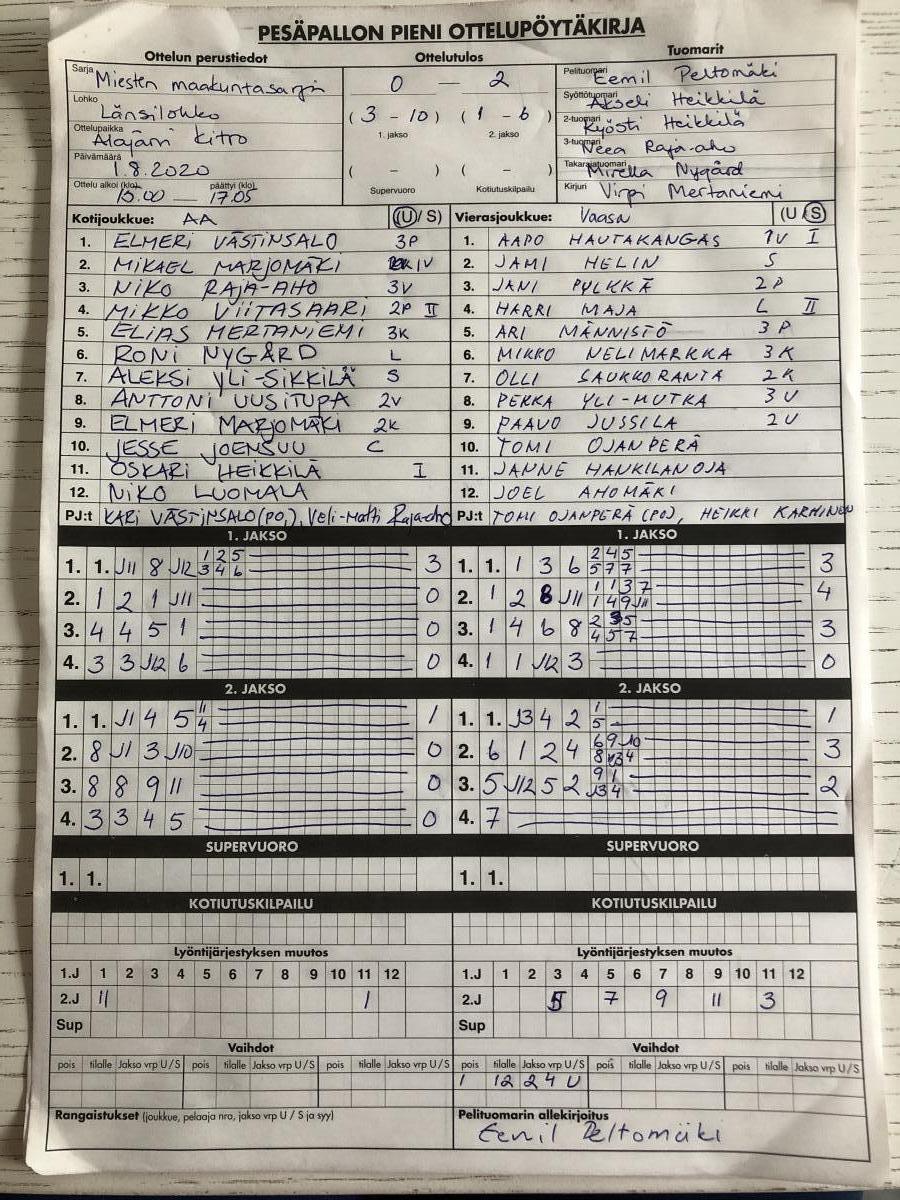 PESÄPALLON PIENI OTTELUPÖYTÄKIRJA
Ottelun perustiedot Ottelutulos Tuomarit
Sarja Miesten maakuntasarja
Lohko Länsilohko
Ottelupaikka Alajärvi Kitro
Päivämäärä 1.8.2020
Ottelu alkoi (klo) 15.00 — päättyi (klo) 17.05
0 — 2
(3 - 10) (1 - 6)
1. jakso 2. jakso
( - ) ( - )
Supervuoro Kotiutuskilpailu
Pelituomari Eemil Peltomäki
Syöttötuomari Akseli Heikkilä
2-tuomari Kyösti Heikkilä
3-tuomari Neea Raja-aho
Takarajatuomari Mirella Nygård
Kirjuri Virpi Mertaniemi
Kotijoukkue: AA (U/S)
1. ELMERI VÄSTINSALO 3P
2. MIKAEL MARJOMÄKI 1V
3. NIKO RAJA-AHO 3V
4. MIKKO VIITASAARI 2P II
5. ELIAS MERTANIEMI 3K
6. RONI NYGÅRD L
7. ALEKSI YLI-SIKKILÄ S
8. ANTTONI UUSITUPA 2V
9. ELMERI MARJOMÄKI 2K
10. JESSE JOENSUU C
11. OSKARI HEIKKILÄ I
12. NIKO LUOMALA
PJ:t KARI VÄSTINSALO (PO,), Veli-Matti Raja-aho
Vierasjoukkue: Vaasa (U/S)
1. AAPO HAUTAKANGAS 1V I
2. JAMI HELIN S
3. JANI PYLKKÄ 2P
4. HARRI MAJA L II
5. ARI MÄNNISTÖ 3P
6. MIKKO NELIMARKKA 3K
7. OLLI SAUKKORANTA 2K
8. PEKKA YLI-HUTKA 3V
9. PAAVO JUSSILA 2V
10. TOMI OJANPERÄ
11. JANNE HANKILANOJA
12. JOEL AHOMÄKI
PJ:t TOMI OJANPERÄ (PO), HEIKKI KARHINEN
1. JAKSO
1. 1. J11 8 J12 1 2 5 3
3 4 6
2. 1 2 1 J11 0
3. 4 4 5 1 0
4. 3 3 J12 6 0
1. JAKSO
1. 1. 1 3 6 2 4 5 3
5 7 7
2. 1 2 8 J11 1 1 3 7 4
1 4 9 J11
3. 1 4 6 8 2 5 3
4 5 7
4. 1 1 J12 3 0
2. JAKSO
1. 1. J1 4 5 11 1
4
2. 8 J1 3 J10 0
3. 8 8 9 11 0
4. 3 3 4 5 0
2. JAKSO
1. 1. J3 4 2 1 1
5
2. 6 1 2 4 6 9 J10 3
8 J3 4
3. 5 J12 5 2 9 1 2
J3 4
4. 7
SUPERVUORO SUPERVUORO
1. 1. 1. 1.
KOTIUTUSKILPAILU KOTIUTUSKILPAILU
Lyöntijärjestyksen muutos Lyöntijärjestyksen muutos
1.J 1 2 3 4 5 6 7 8 9 10 11 12 1.J 1 2 3 4 5 6 7 8 9 10 11 12
2.J 11 1 2.J 5 7 9 11 3
Sup Sup
Vaihdot Vaihdot
pois tilalle Jakso vrp U/S pois tilalle Jakso vrp U/S pois tilalle Jakso vrp U/S pois tilalle Jakso vrp U/S pois tilalle Jakso vrp U/S pois tilalle Jakso vrp U/S
1 12 2 4 U
Rangaistukset (joukkue, pelaaja nro, jakso vrp U / S ja syy) Pelituomarin allekirjoitus
Eemil Peltomäki